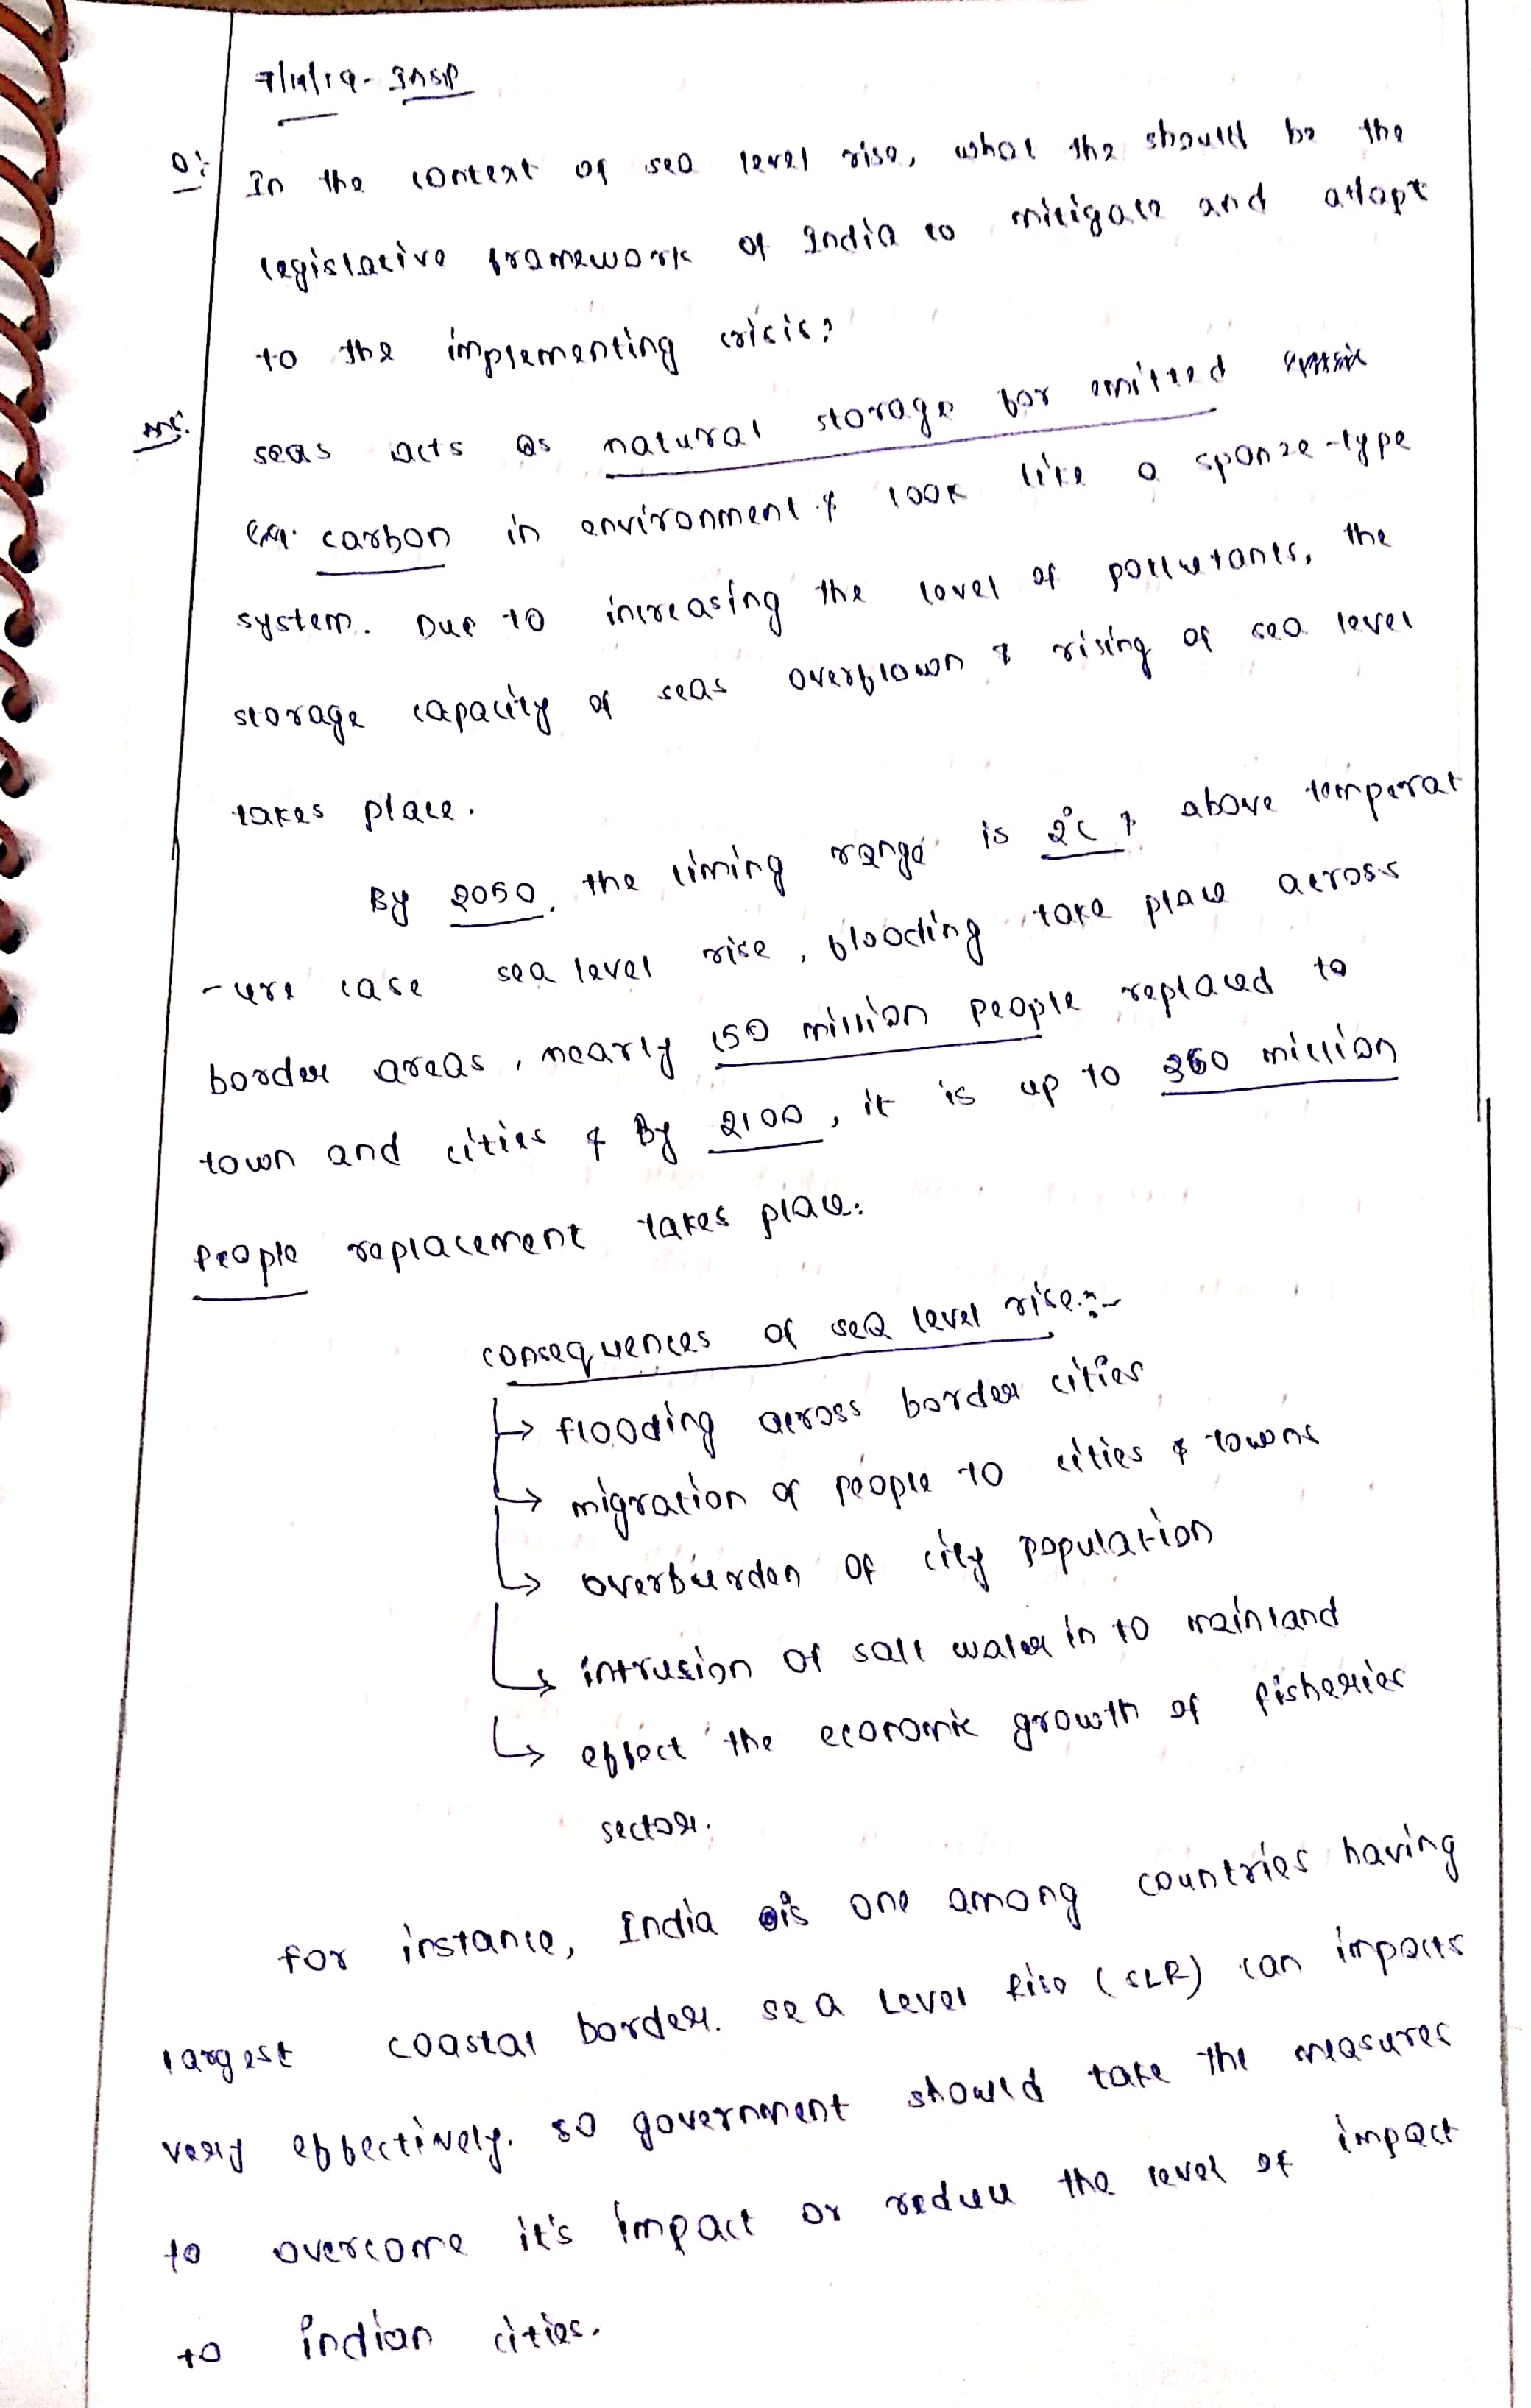 7/11/19 - INSIP
Q: In the context of sea level rise, what the should be the
legislative framework of India to mitigate and adapt
to the implementing crisis?
Ans. seas acts as natural storage for emitted
carbon in environment & look like a sponze-type
system. Due to increasing the level of pollutants, the
storage capacity of seas overflown & rising of sea level
takes place.
By 2050, the liming range is 2°C & above temperat
-ure case sea level rise, flooding take place across
border areas, nearly 150 million people replaced to
town and cities & By 2100, it is up to 360 million
People replacement takes place.
consequences of sea level rise:-
↳ flooding across border cities
↳ migration of people to cities & towns
↳ overburden of city population
↳ intrusion of salt water in to mainland
↳ effect the economic growth of fisheries
sector.
for instance, India is one among countries having
largest coastal border. sea Level Rise (SLR) can impacts
very effectively. so government should take the measures
to overcome it's impact or reduce the level of impact
to indian cities.